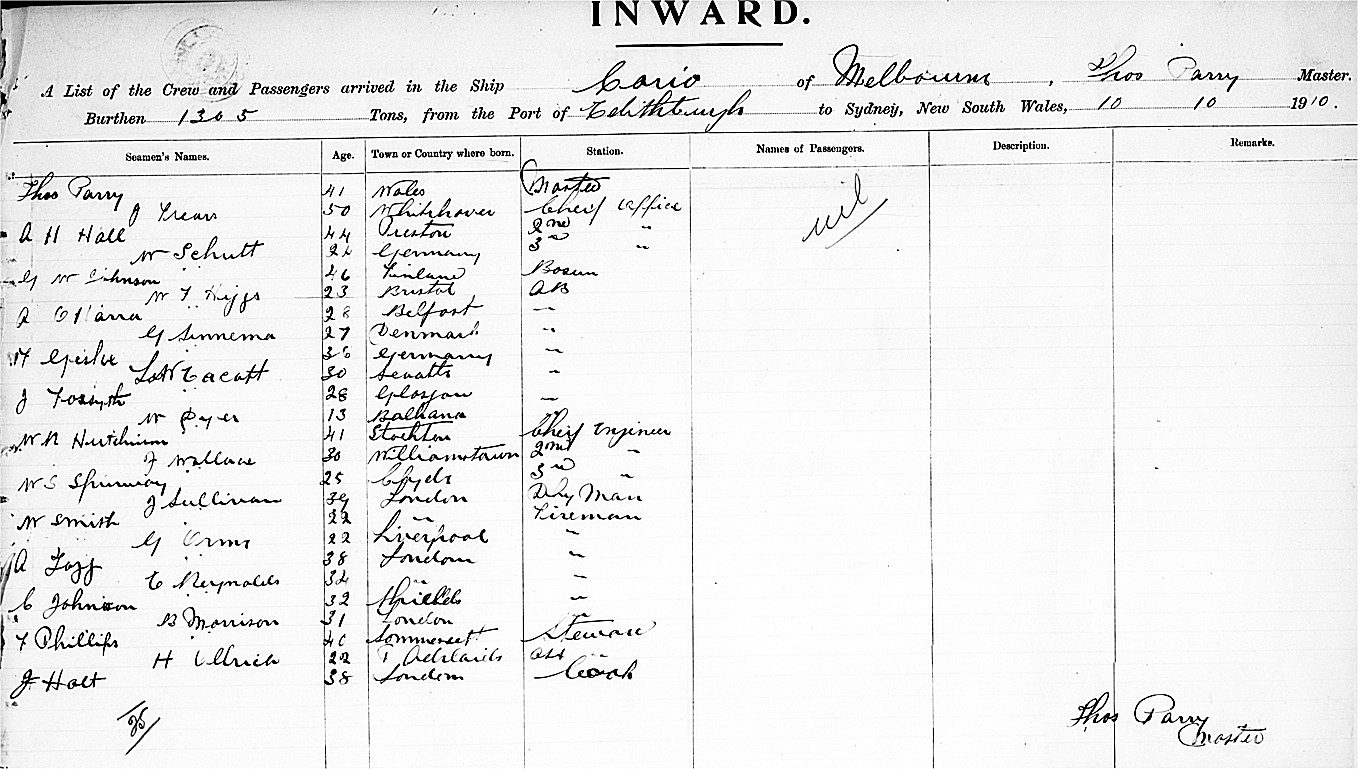 INWARD.
A List of the Crew and Passengers arrived in the Ship Cario of Melbourne, Thos Parry Master.
Burthen 1305 Tons, from the Port of Edithburgh to Sydney, New South Wales, 10 10 1910.
Seamen's Names. Age. Town or Country where born. Station. Names of Passengers. Description. Remarks.
Thos Parry 41 Wales Master nil
J 50 Whitehaver Cheif Office
A H Hall 44 Preston 2nd "
W Schutt 24 Germany 3rd "
G W Johnson 46 Finland Bosun
W F Higgs 23 Bristol AB
A O'Harra 28 Belfast "
G Sinnema 27 Denmark "
36 Germany "
30 "
J Forsyth 28 Glasgow "
W Dyer 13 Balhana
W R Hutchinson 41 Stockton Cheif Engineer
J Wallace 30 Williamstown 2nd "
W S Spurway 25 Clyde 3rd "
J Sullivan 39 London Dky Man
W Smith 22 " Fireman
G Orms 22 Liverpool "
A Fogg 38 London "
C Reynolds 34 " "
C Johnson 32 Shields "
B Morrison 31 London "
F Phillips 40 Sommersett Steward
H Ullrich 22 P Adelaide Ass "
J Holt 38 London Cook
25
Thos Parry
Master